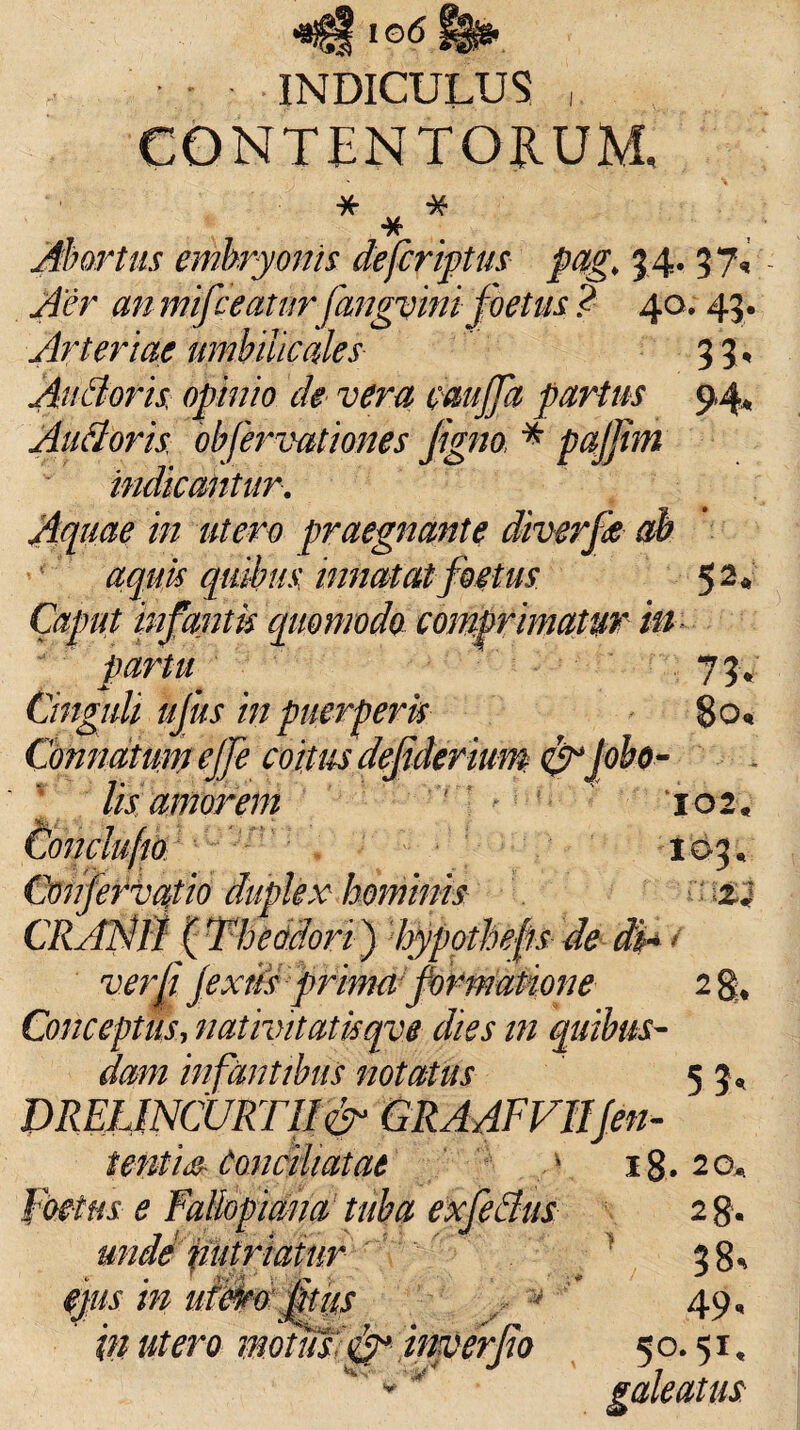 106
INDICULUS
CONTENTORUM.
* * *
Abortus embryonis deſcriptus pag. 34. 37.
Aër an miſceatur ſangvini foetus? 40. 43.
Arteriae umbilicales 33.
Auctoris opinio de vera cauſſa partus 94.
Auctoris obſervationes ſigno * paſſim
indicantur.
Aquae in utero praegnante diverſæ ab
aquis quibus innatat foetus 52.
Caput infantis quomodo comprimatur in
partu 73.
Cinguli uſus in puerperis 80.
Connatum eſſe coitus deſiderium & ſobo-
lis amorem 102.
Concluſio 103.
Conſervatio duplex hominis 2.
CRANII (Theodori) hypotheſis de di-
verſi ſexus prima formatione 28.
Conceptus, nativitatisqve dies in quibus-
dam infantibus notatus 53.
DRELINCURTII & GRAAFVII ſen-
tentiæ conciliatae 18. 20.
Foetus e Fallopiana tuba exſectus 28.
unde nutriatur 38.
ejus in utero ſitus 49.
in utero motus & inverſio 50. 51.
galeatus